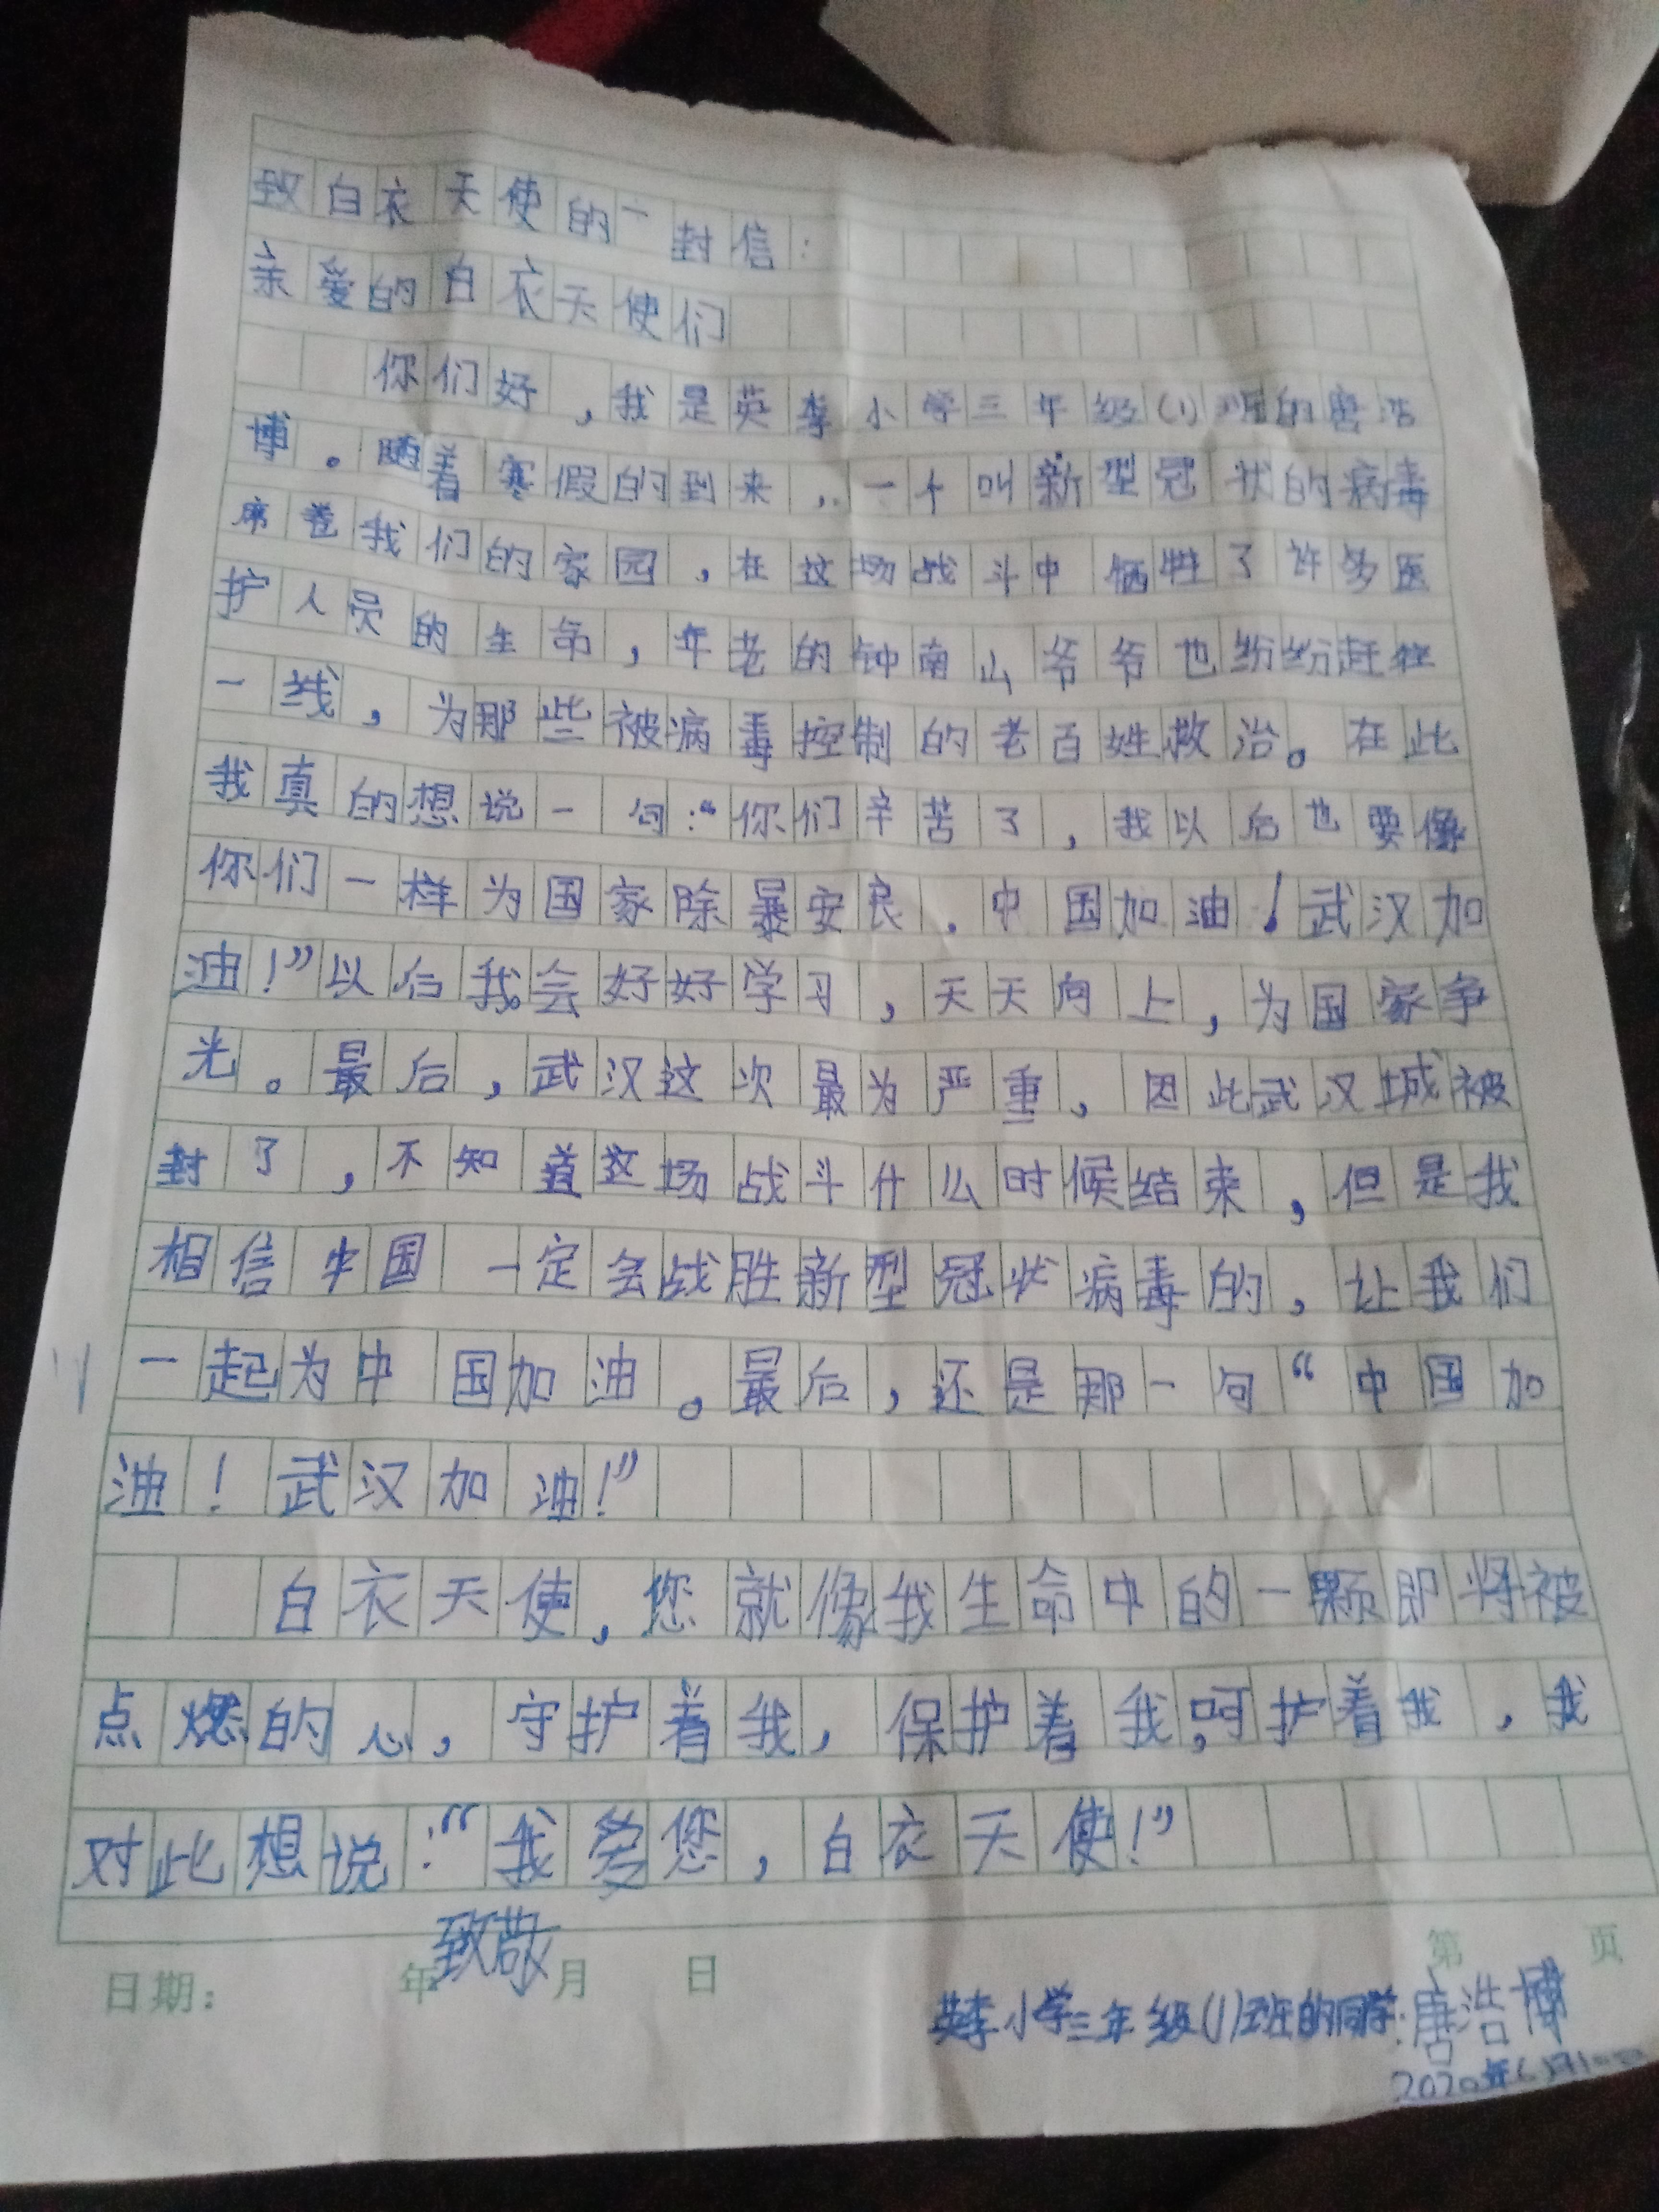 致白衣天使的一封信：
亲爱的白衣天使们
你们好，我是英李小学三年级(1)班的唐浩
博。随着寒假的到来，一个叫新型冠状的病毒
席卷我们的家园，在这场战斗中牺牲了许多医
护人员的生命，年老的钟南山爷爷也纷纷赶往
一线，为那些被病毒控制的老百姓救治。在此
我真的想说一句：“你们辛苦了，我以后也要像
你们一样为国家除暴安良．中国加油！武汉加
油！”以后我会好好学习，天天向上，为国家争
光。最后，武汉这次最为严重，因此武汉城被
封了，不知道这场战斗什么时候结束，但是我
相信中国一定会战胜新型冠状病毒的，让我们
一起为中国加油。最后，还是那一句“中国加
油！武汉加油！”
白衣天使，您就像我生命中的一颗即将被
点燃的心，守护着我，保护着我，呵护着我，我
对此想说：“我爱您，白衣天使！”
致敬
日期： 年 月 日
第 页
英李小学三年级(1)班的同学：唐浩博
2020年6月